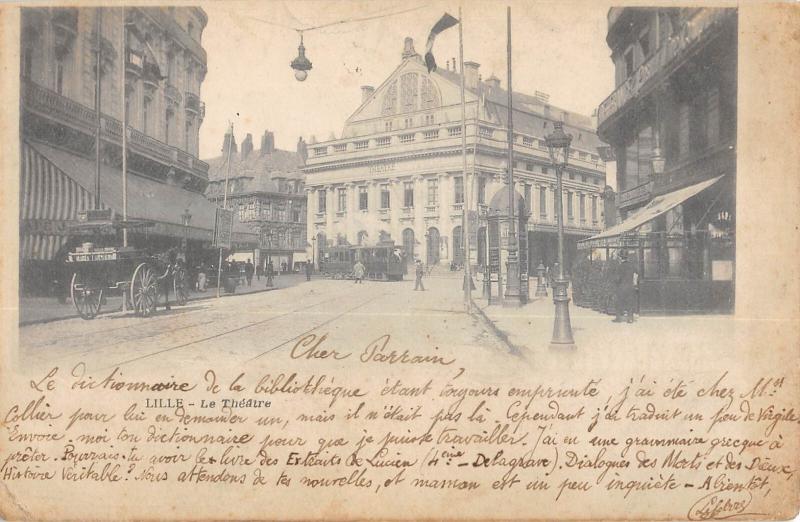 THÉATRE
Cher Parrain
Le dictionnaire de la bibliothèque étant toujours emprunté, j'ai été chez Mr
LILLE - Le Théâtre
Collier pour lui en demander un, mais il n'était pas là. Cependant j'ai traduit un peu de Virgile.
Envoie-moi ton dictionnaire pour que je puisse travailler. J'ai eu une grammaire grecque à
prêter. Pourrais-tu avoir le livre des Extraits de Lucien (4ème - Delagrave), Dialogues des Morts et des Dieux,
Histoire Véritable? Nous attendons de tes nouvelles, et maman est un peu inquiète - A bientôt,
Lefebvre